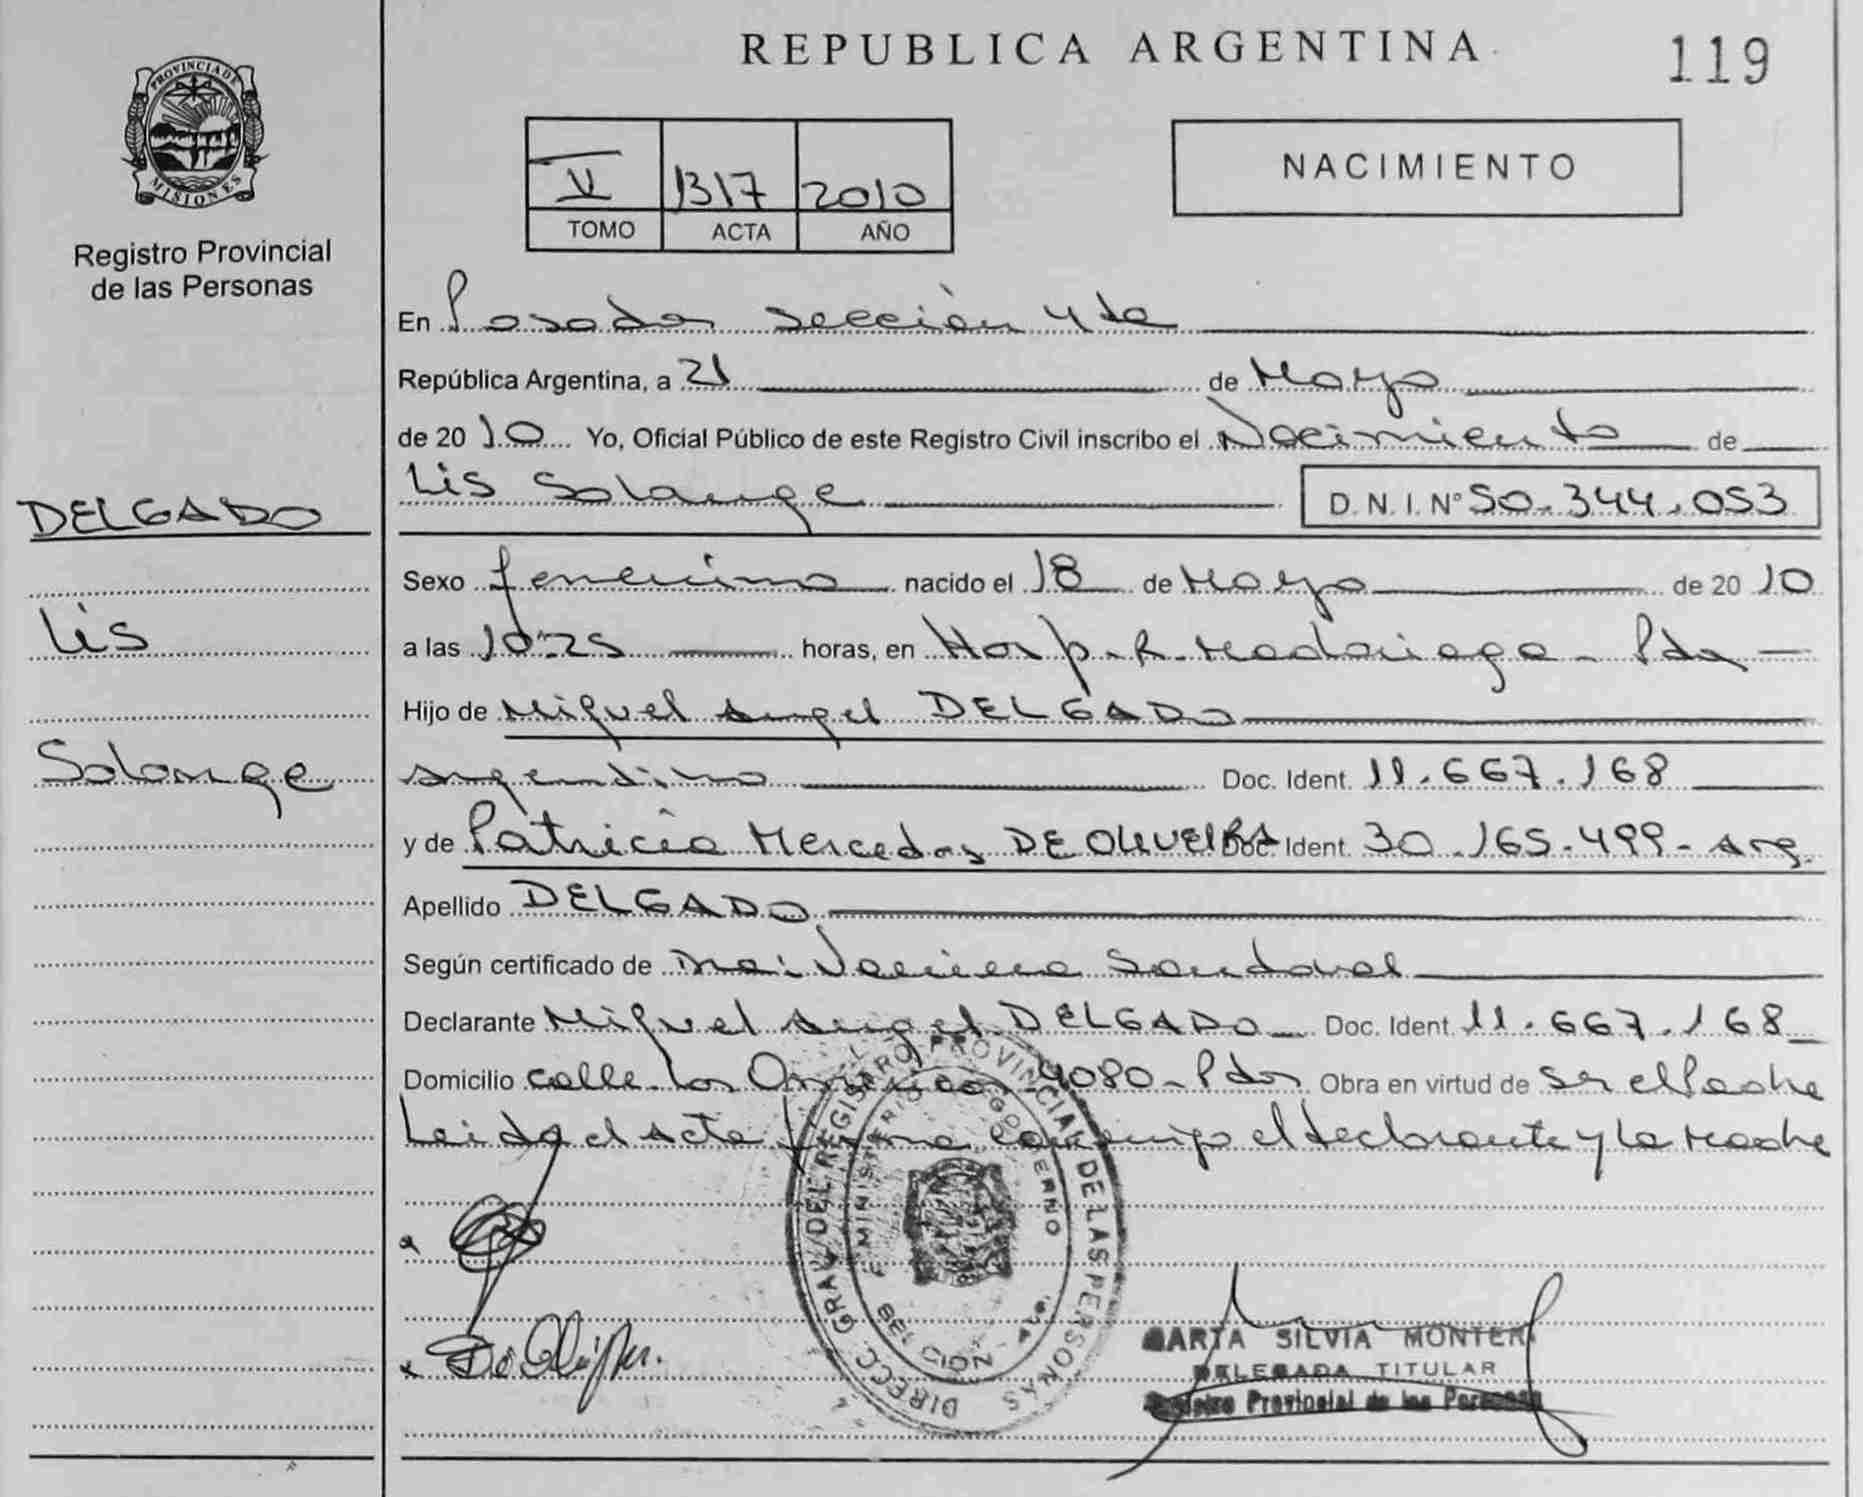 REPUBLICA ARGENTINA
119
PROVINCIA DE MISIONES
Registro Provincial
de las Personas
V 1317 2010
TOMO ACTA AÑO
NACIMIENTO
En Posadas sección 4ta
República Argentina, a 21 de Mayo
de 2010 Yo, Oficial Público de este Registro Civil inscribo el Nacimiento de
Lis Solange D. N. I. N° 50.344.053
DELGADO
Lis
Solange
Sexo femenino nacido el 18 de Mayo de 2010
a las 10:25 horas, en Hosp. R. Madariaga - Pdas -
Hijo de Miguel Angel DELGADO
argentino Doc. Ident. 11.667.168
y de Patricia Mercedes DE OLIVEIRA Doc. Ident. 30.165.499 - Arg.
Apellido DELGADO
Según certificado de Dra: Sandoval
Declarante Miguel Angel DELGADO Doc. Ident. 11.667.168
Domicilio calle Los 4080 - Pdas Obra en virtud de ser el Padre
Leida el Acta firma conmigo el declarante y la Madre
DIRECC. GRAL. DEL REGISTRO PROVINCIAL DE LAS PERSONAS
MINISTERIO GOBIERNO
MARTA SILVIA MONTERO
DELEGADA TITULAR
Registro Provincial de las Personas